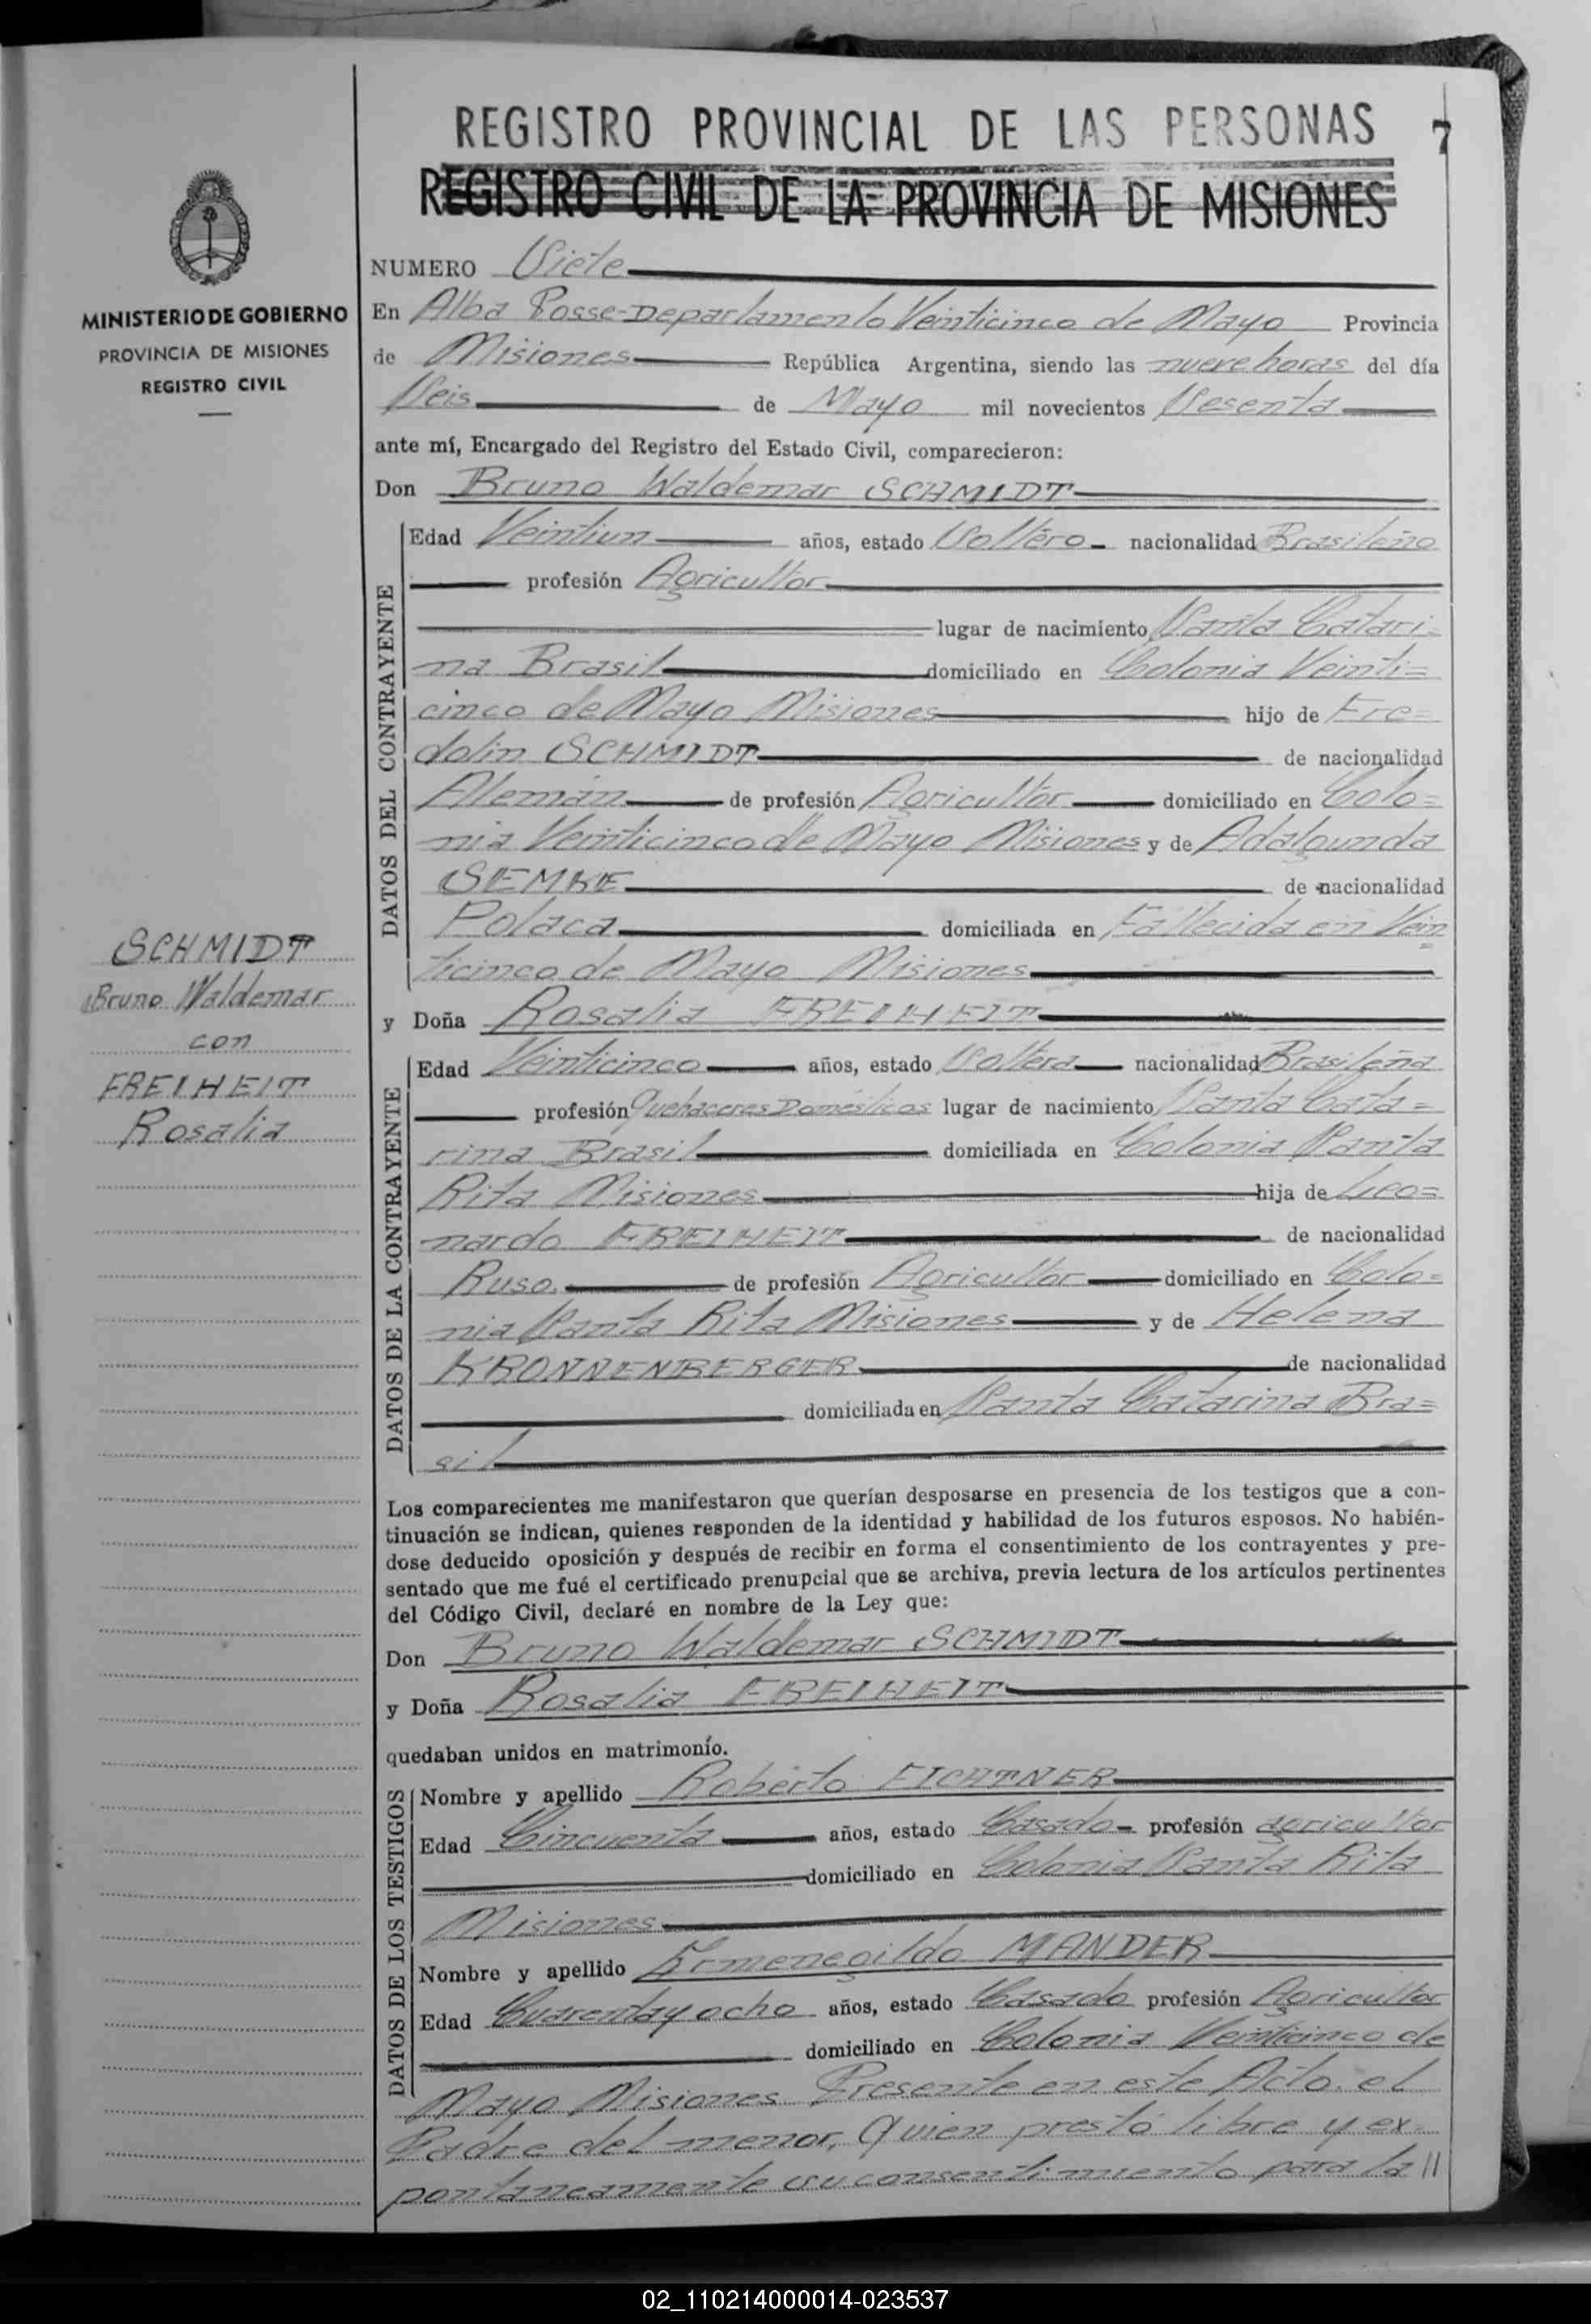 REGISTRO PROVINCIAL DE LAS PERSONAS
7
REGISTRO CIVIL DE LA PROVINCIA DE MISIONES
MINISTERIO DE GOBIERNO
PROVINCIA DE MISIONES
REGISTRO CIVIL
SCHMIDT
Bruno Waldemar
con
FREIHEIT
Rosalia
NUMERO Siete
En Alba Posse-Departamento Veinticinco de Mayo Provincia
de Misiones República Argentina, siendo las nueve horas del día
Seis de Mayo mil novecientos Sesenta
ante mí, Encargado del Registro del Estado Civil, comparecieron:
Don Bruno Waldemar SCHMIDT
DATOS DEL CONTRAYENTE
Edad Veintiun años, estado Soltero nacionalidad Brasileño
profesión Agricultor
lugar de nacimiento Santa Catari=
na Brasil domiciliado en Colonia Veinti=
cinco de Mayo Misiones hijo de Fre=
dolin SCHMIDT de nacionalidad
Alemán de profesión Agricultor domiciliado en Colo=
nia Veinticinco de Mayo Misiones y de Adalgunda
SEMKE de nacionalidad
Polaca domiciliada en Fallecida en Vein=
ticinco de Mayo Misiones
y Doña Rosalia FREIHEIT
DATOS DE LA CONTRAYENTE
Edad Veinticinco años, estado Soltera nacionalidad Brasileña
profesión Quehaceres Domésticos lugar de nacimiento Santa Cata=
rina Brasil domiciliada en Colonia Santa
Rita Misiones hija de Leo=
nardo FREIHEIT de nacionalidad
Ruso. de profesión Agricultor domiciliado en Colo=
nia Santa Rita Misiones y de Helena
KRONNENBERGER de nacionalidad
domiciliada en Santa Catarina Bra=
sil
Los comparecientes me manifestaron que querían desposarse en presencia de los testigos que a con-
tinuación se indican, quienes responden de la identidad y habilidad de los futuros esposos. No habién-
dose deducido oposición y después de recibir en forma el consentimiento de los contrayentes y pre-
sentado que me fué el certificado prenupcial que se archiva, previa lectura de los artículos pertinentes
del Código Civil, declaré en nombre de la Ley que:
Don Bruno Waldemar SCHMIDT
y Doña Rosalia FREIHEIT
quedaban unidos en matrimonio.
DATOS DE LOS TESTIGOS
Nombre y apellido Roberto FICHTNER
Edad Cincuenta años, estado Casado profesión agricultor
domiciliado en Colonia Santa Rita
Misiones
Nombre y apellido Ermenegildo MANDER
Edad Cuarentay ocho años, estado Casado profesión Agricultor
domiciliado en Colonia Veinticinco de
Mayo Misiones Presente en este Acto. el
Padre del menor, Quien prestó libre y ex-
pontaneamente su consentimiento para la //
02_110214000014-023537